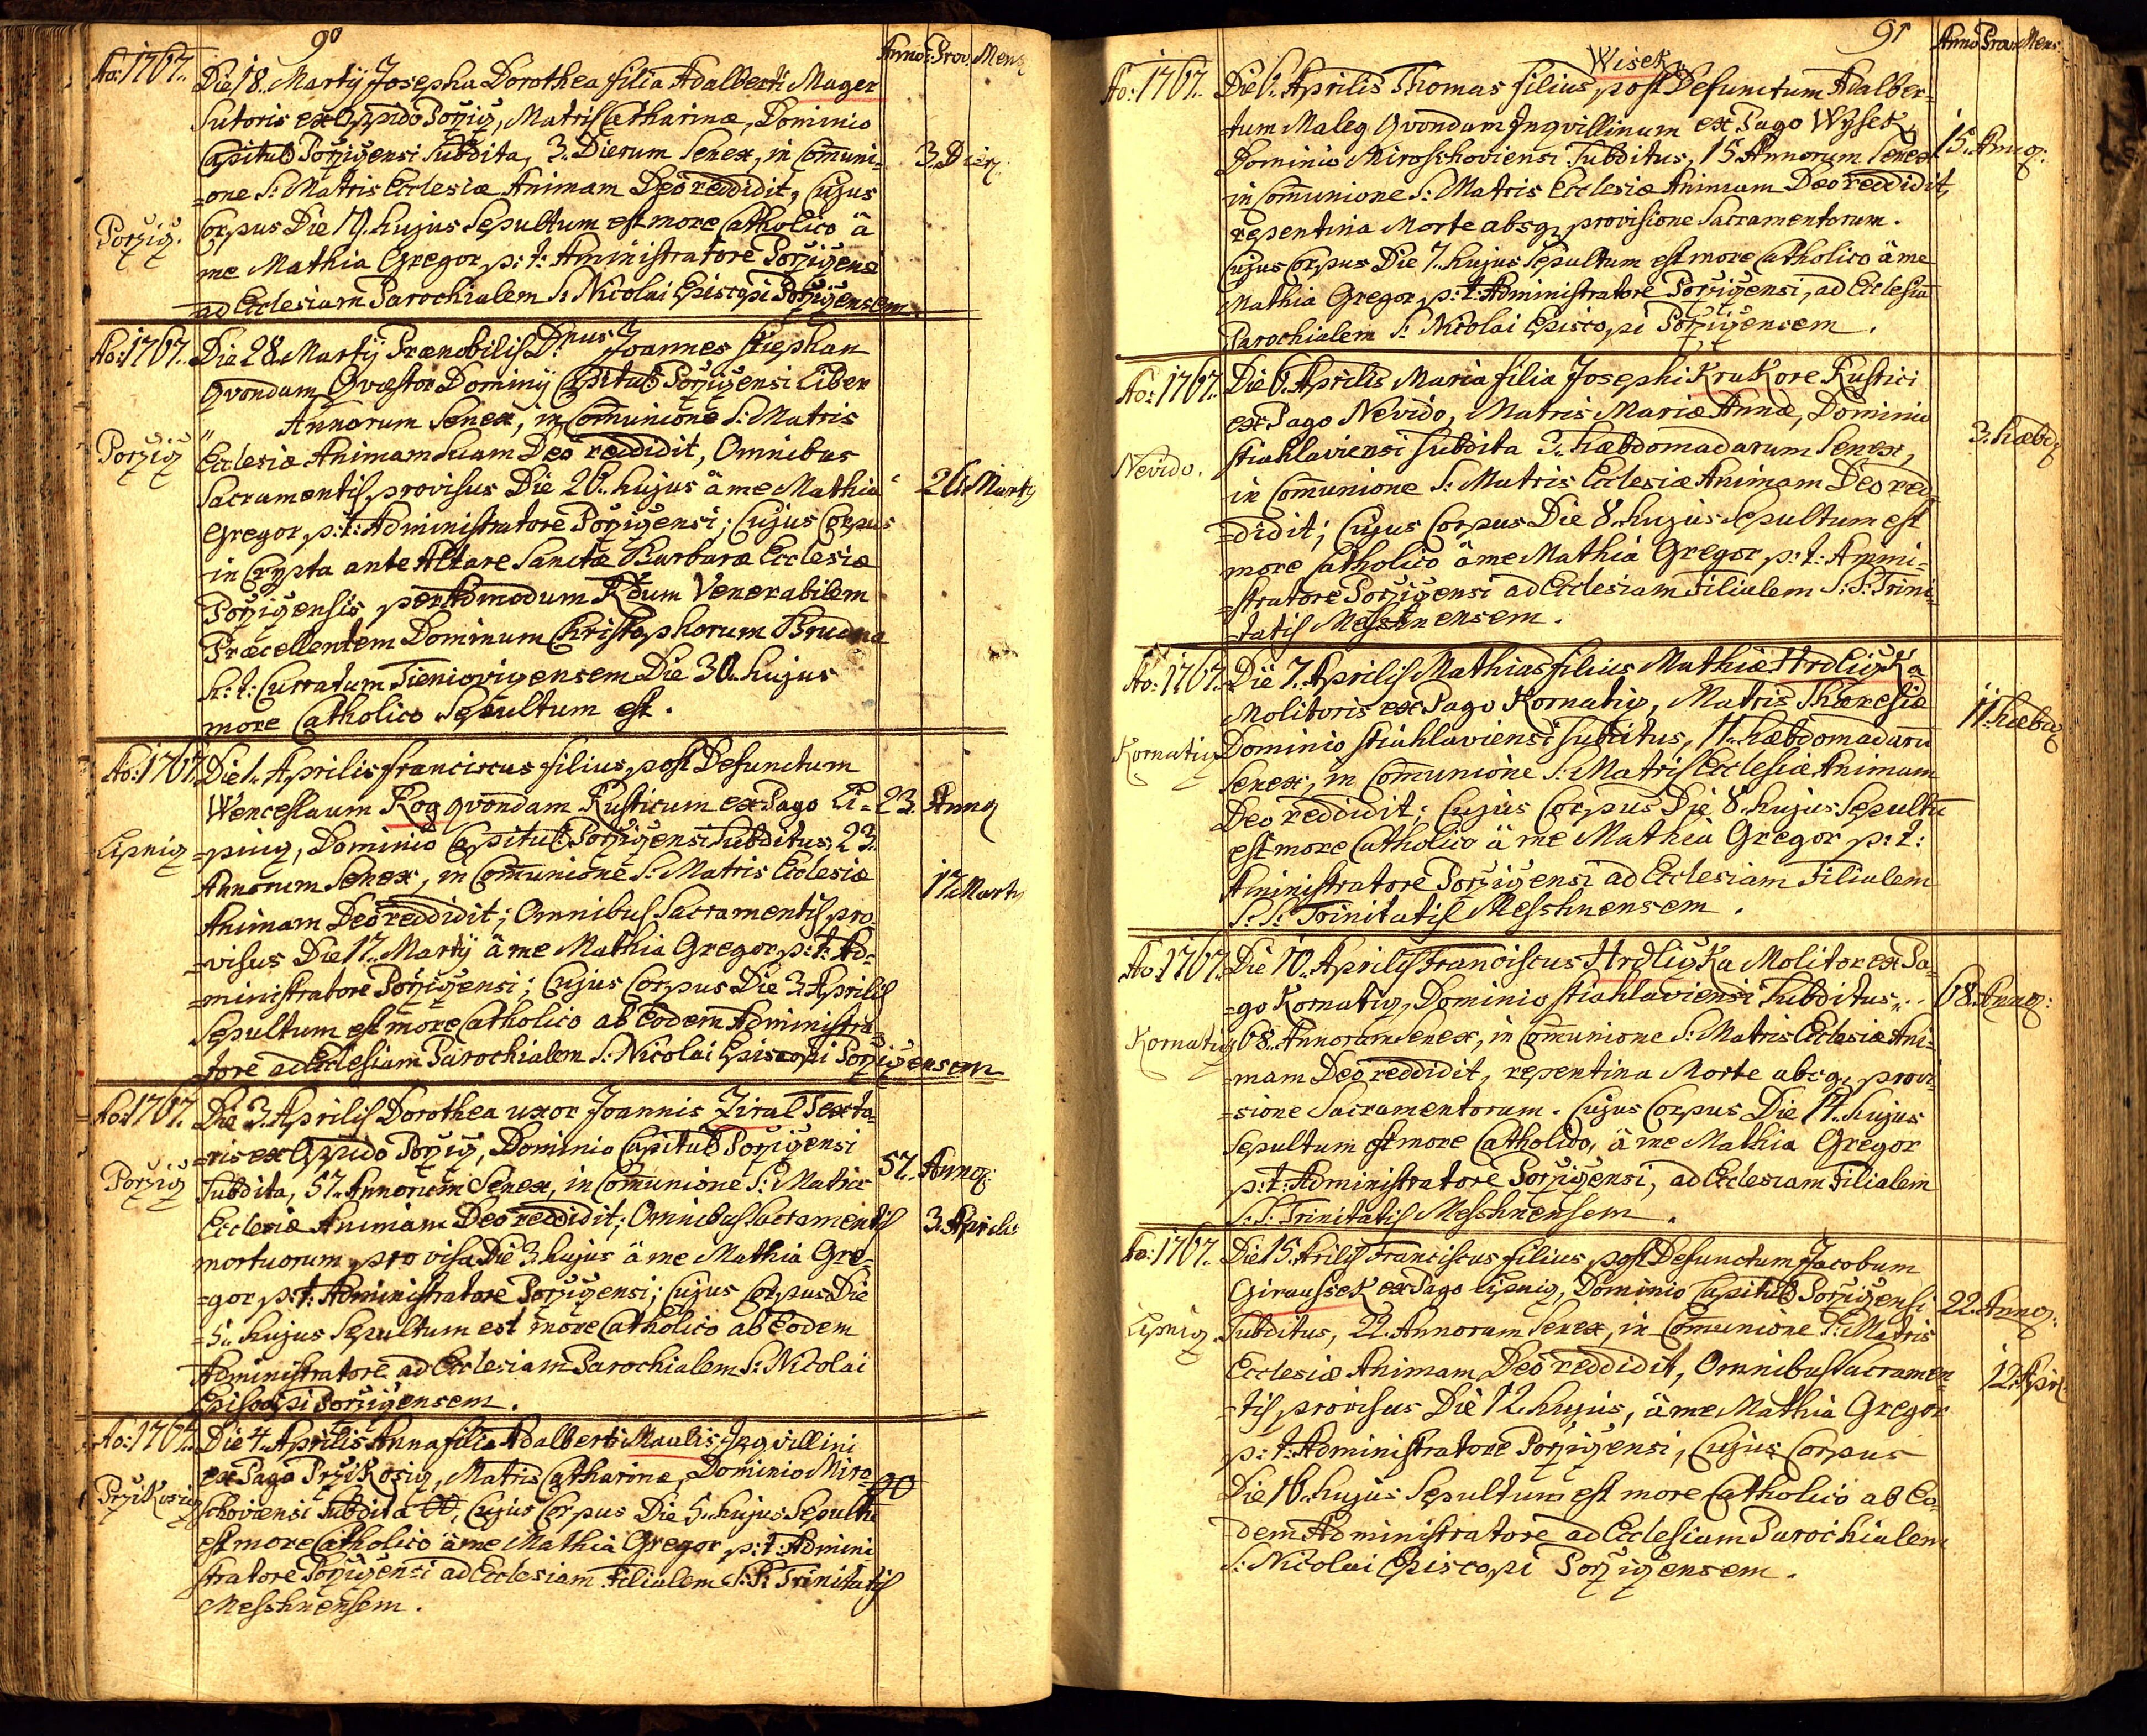 90
Anno: Prov. Mens
Ao: 1767.. Die 18. Martÿ Josepha Dorothea filia Adalberti Mager
Sutoris ex Oppido Porzicz, Matris Catharinæ, Dominio
Capituli Porzicensi Subdita, 3. Dierum Senex, in Communi- 3. Dier.
=one S: Matris Ecclesiæ Animam Deo reddidit, Cujus
Porzicz. Corpus Die 19. hujus Sepultum est more Catholico à
me Mathia Gregor p: t: Aministratore Porzicensi
ad Ecclesiam Parochialem S: Nicolai Episcopi Porzicensem.
Ao: 1767.. Die 28. Martÿ Prænobilis D:nus Joannes Stephan
Qvondam Qvæstor Dominÿ Capituli Porzicensi Liber
Annorum Senex, in Communione S: Matris
Porzicz Ecclesiæ Animam Suam Deo reddidit, Omnibus
Sacramentis provisus Die 26. hujus à me Mathia 26. Marty
Gregor p: t: Administratore Porzicensi; Cujus Corpus
in Crypta ante Altare Sanctæ Barbaræ Ecclesiæ
Porzicensis per Admodum Rdum Venerabilem
Præcellentem Dominum Christophorum Brudna
h: t: Curratum Tieniovicensem Die 30. hujus
more Catholico Sepultum est.
Ao: 1767. Die 1. Aprilis Franciscus filius post Defunctum
Wenceslaum Kog qvondam Rusticum ex Pago Li= 23. Annoz
Lipnicz =pnicz, Dominio Capituli Porzicensi Subditus, 23.
Annorum Senex, in Communione S: Matris Ecclesiæ 17. Marty
Animam Deo reddidit; Omnibus Sacramentis pro
=visus Die 17. Martÿ à me Mathia Gregor p: t: Ad=
=ministratore Porzicensi; Cujus Corpus Die 3. Aprilis
Sepultum est more Catholico ab Eodem Administra
=tore ad Ecclesiam Parochialem S: Nicolai Episcopi Porzicensem
Ao: 1767. Die 3. Aprilis Dorothea uxor Joannis Ziral Texto-
=ris ex Oppido Porzicz, Dominio Capituli Porzicensi
Porzicz Subdita, 57. Annorum Senex, in Communione S: Matris 57. Annoz:
Ecclesiæ Animam Deo reddidit; Omnibus Sacramentis 3. Aprilis
mortuorum provisa Die 3. hujus à me Mathia Gre=
=gor p: t: Administratore Porzicensi; Cujus Corpus Die
=5. hujus Sepultum est more Catholico ab Eodem
Administratore ad Ecclesiam Parochialem S: Nicolai
Episcopi Porzicensem.
Ao: 1767. Die 4. Aprilis Anna filia Adalberti Maulis Inqvillini
ex Pago Przikosicz, Matris Catharinæ, Dominio Miro=
Przikosicz schoviensi Subdita, Cujus Corpus Die 5. hujus Sepultū
est more Catholico à me Mathia Gregor p: t: Admini
stratore Porzicensi ad Ecclesiam Filialem S: S: Trinitatis
Messhnensem.
91
Anno Prov: Mens
Wisek
Ao: 1767. Die 6. Aprilis Thomas filius post Defunctum Adalber=
=tum Maleg Qvondam Inqvillinum ex Pago Wysek,
Dominio Miroschoviensi Subditus, 15. Annorum Senex 15. Annoz:
in Communione S: Matris Ecclesiæ Animam Deo reddidit,
repentina Morte absqz provisione Sacramentorum.
Cujus Corpus Die 7. hujus Sepultum est more Catholico à me
Mathia Gregor p: t: Administratore Porzicensi, ad Ecclesiā
Parochialem S: Nicolai Episcopi Porzicensem.
Ao: 1767.. Die 6. Aprilis Maria filia Josephi Krukore Rustici
ex Pago Nevido, Matris Mariæ Annæ, Dominio
Nevido. Stiahlaviensi Subdita 3. hæbdomadarum Senex, 3. hæbdz
in Communione S: Matris Ecclesiæ Animam Deo red
=didit; Cujus Corpus Die 8. hujus Sepultum est
more Catholico à me Mathia Gregor p: t: Ammi=
=stratore Porzicensi ad Ecclesiam Filialem S: S: Trini=
=tatis Messhnensem.
Ao: 1767.. Die 7. Aprilis Mathias filius Mathiæ Hrdliczka
Molitoris ex Pago Kornaticz, Matris Theresiæ
Kornaticz Dominio Stiahlaviensi Subditus, 11. hæbdomadarū 11. hæbdz
Senex, in Communione S: Matris Ecclesiæ Animam
Deo reddidit; Cujus Corpus Die 8. hujus Sepultū
est more Catholico à me Mathia Gregor p: t:
Aministratore Porzicensi ad Ecclesiam Filialem
S: S: Trinitatis Messhnensem.
Ao: 1767.. Die 10. Aprilis Franciscus Hrdliczka Molitor ex Pa=
=go Kornaticz, Dominio Stiahlaviensi Subditus, 68. Annoz:
Kornaticz 68. Annorum Senex, in Communione S: Matris Ecclesiæ Ani=
=mam Deo reddidit, repentina Morte absqz provi=
=sione Sacramentorum. Cujus Corpus Die 11. hujus
Sepultum est more Catholico, à me Mathia Gregor
p: t: Administratore Porzicensi, ad Ecclesiam Filialem
S: S: Trinitatis Messhnensem.
Ao: 1767. Die 15. Arilis Franciscus filius post Defunctum Jacobum
Giraussek ex Pago Lipnicz, Dominio Capituli Porzicensi 22. Annoz:
Lipnicz Subditus, 22. Annorum Senex, in Communione S: Matris
Ecclesiæ Animam Deo reddidit, Omnibus Sacramen= 12. Apri:
=tis provisus Die 12. hujus, à me Mathia Gregor
p: t: Administratore Porzicensi, Cujus Corpus
Die 16. hujus Sepultum est more Catholico ab Eo=
=dem Administratore ad Ecclesiam Parochialem
S: Nicolai Episcopi Porzicensem.